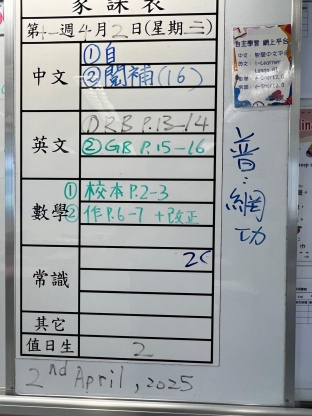 家課表
第十一週4月2日(星期三)
中文
①自
②閱補(16)
英文
①RB P.13-14
②GB P.15-16
數學
①校本P.2-3
②作P.6-7 +改正
常識
其它
值日生
2
2nd April, 2025
自主學習 網上平台
普:網功